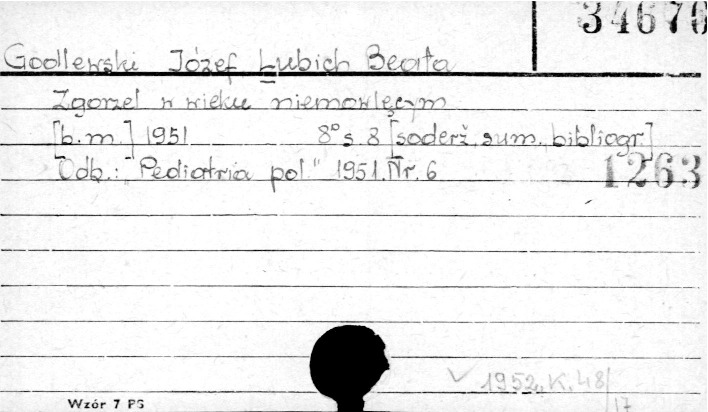 34670
Godlewski Józef Łubich Beata
Zgorzel w wieku niemowlęcym
[b.m.] 1951 8° s. 8 [soderž. sum. bibliogr]
Odb.: "Pediatria pol." 1951. Nr. 6
1263
1952. K. 48/17
Wzór 7 PS